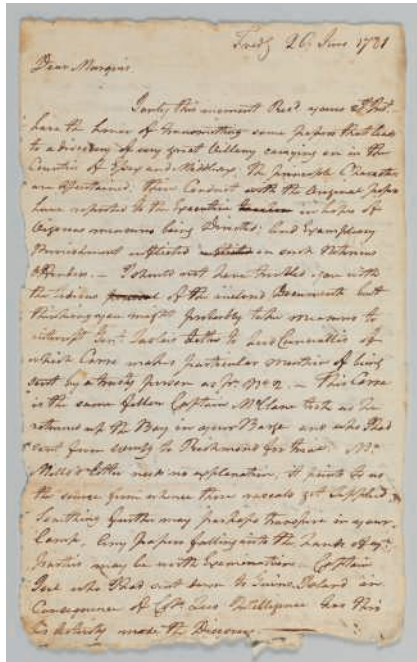 Fred.g 26 June 1781
Dear Marquis
I only this moment Rec.d yours &
have the honor of transmitting some papers that lead
to a discovery of very great villany carrying on in the
Counties of Essex and Middlesex, the principle Characters
are ascertained, their Conduct with the Original papers
have reported to the Executive in hopes of
Vigorous measures being Directed and Examplary
Punishment inflicted in such Notorious
Offenders. — I should not have troubled you with
the tedious of the inclosed Documents but
thinking you might probably take measures to
intercept Letter to Lord Cornwallis of
which Carre makes particular mention of being
sent by a trusty person as pr. No. 2. — This Carre
is the same fellow Captain McClane took as he
returned up the Bay in your Barge and who I had
sent from to Richmond for trial. Mr.
Mills's letter needs no explanation, it points to us
the source from whence these vessels get supplied
Something further may perhaps transpire in your
Camp. Any papers falling into the hands of yr.
parties may be worth Examination — Captain
who I had sent down to Island in
Consequence of Intelligence has this
activity made the Discovery